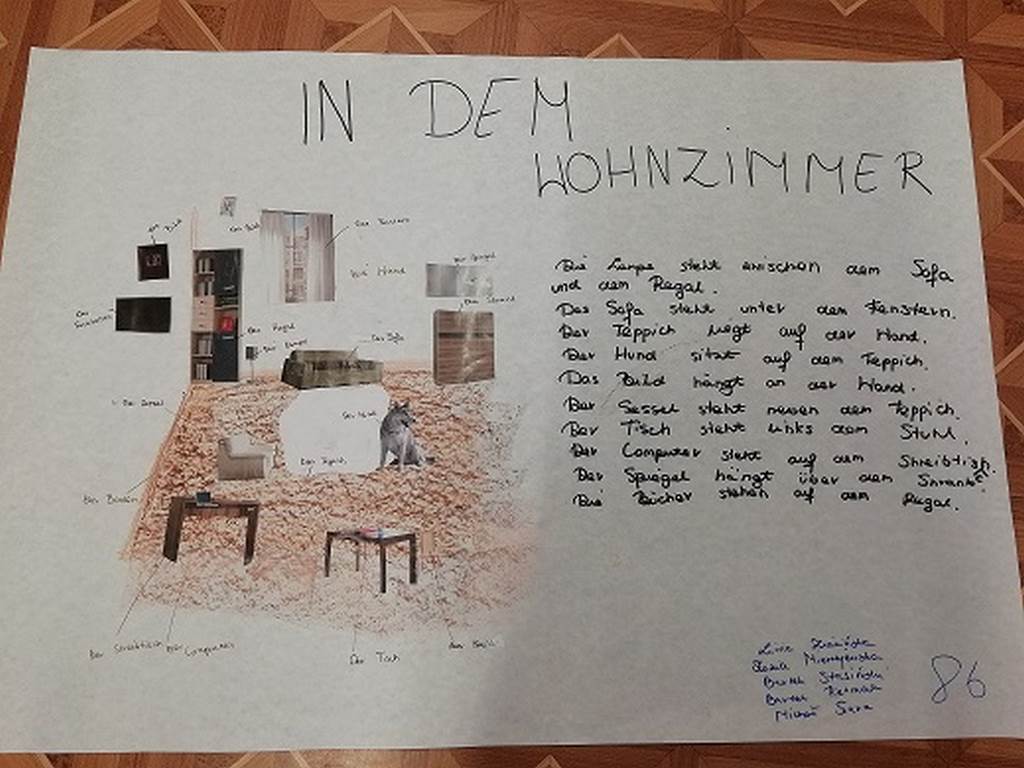 IN DEM
WOHNZIMMER
Das Bild
Das Bild
Das Fenster
Die Wand
Der Spiegel
Der Schrank
Das Regal
Die Lampe
Das Sofa
Der Sessel
Der Hund
Der Teppich
Der Boden
Der Schreibtisch
Der Computer
Der Tisch
Die Lampe steht zwischen dem Sofa
und dem Regal.
Das Sofa steht unter dem Fenstern.
Der Teppich liegt auf der Wand.
Der Hund sitzt auf dem Teppich.
Das Bild hängt an der Wand.
Der Sessel steht neben dem Teppich.
Der Tisch steht links dem Stuhl.
Der Computer steht auf dem Shreibtisch.
Der Spiegel hängt über dem Shrank.
Die Bücher stehen auf dem Regal.
Bartek
Michał
86